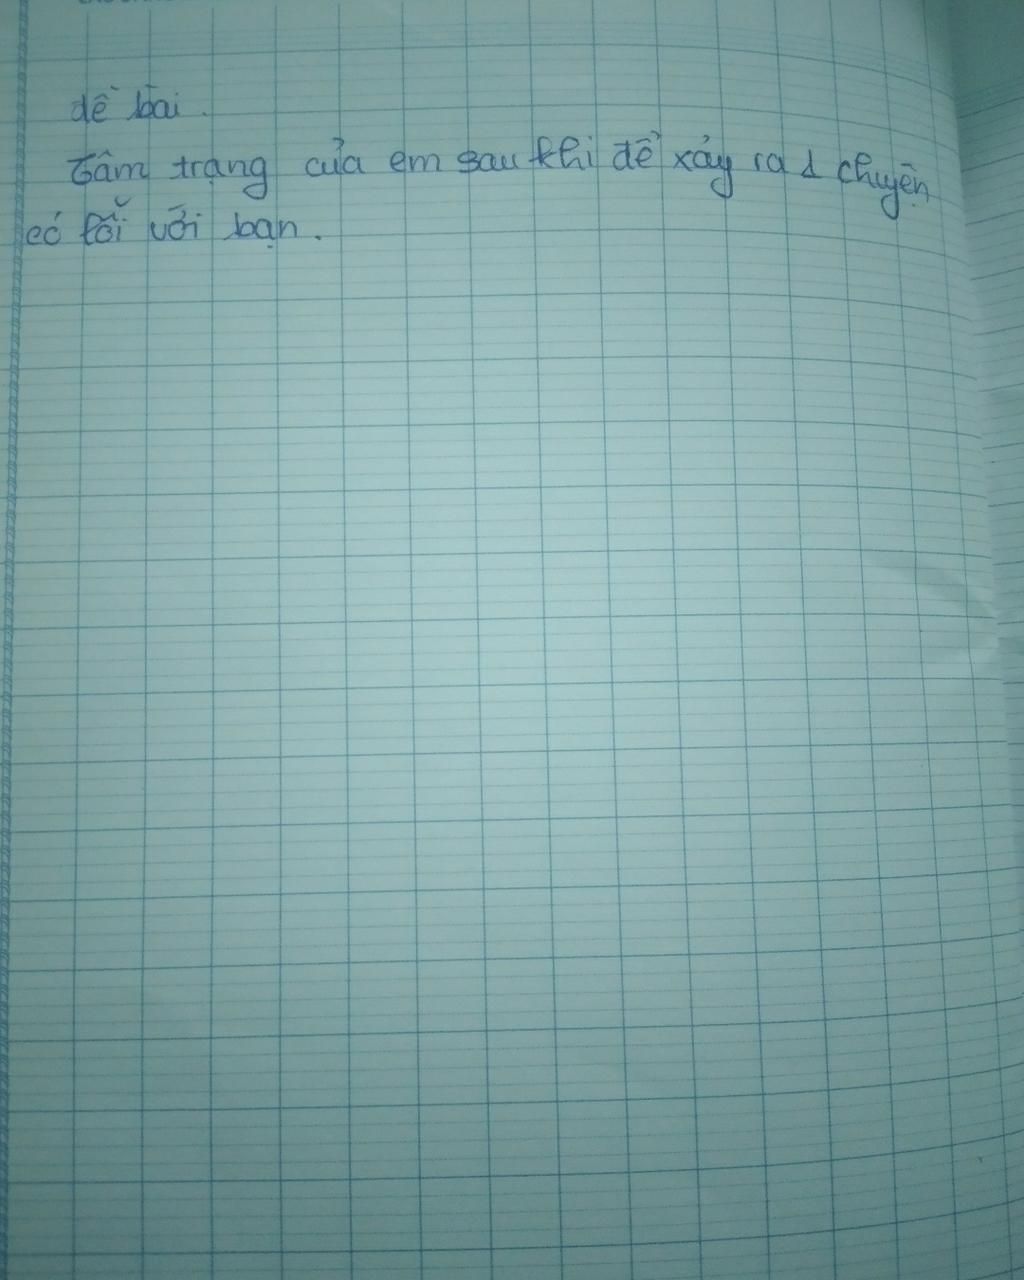 dề bài.
Tâm trạng của em sau khi để xảy ra 1 chuyện
có lỗi với bạn.